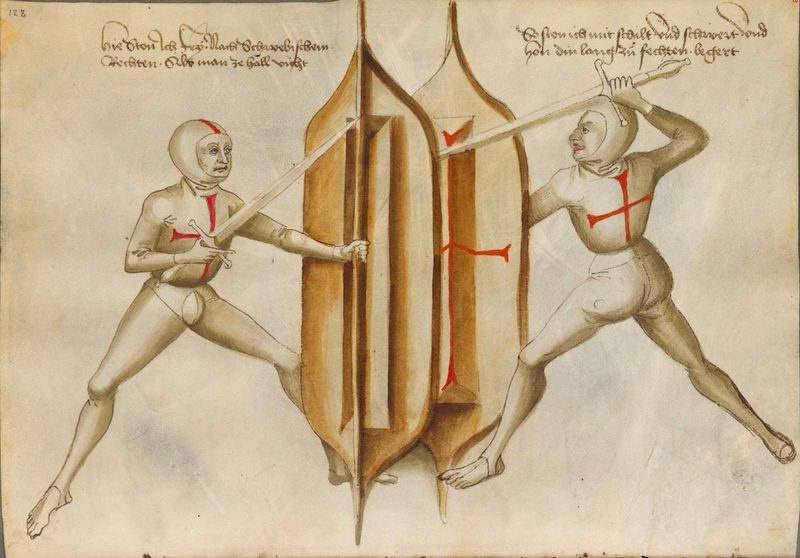 128
Hie Ston Ich fry · Nach Schwebischem
Rechten · Als man ze hall vicht
So ston ich mit schilt Vnd schwert Vnd
hon din lang zu fechten · begert